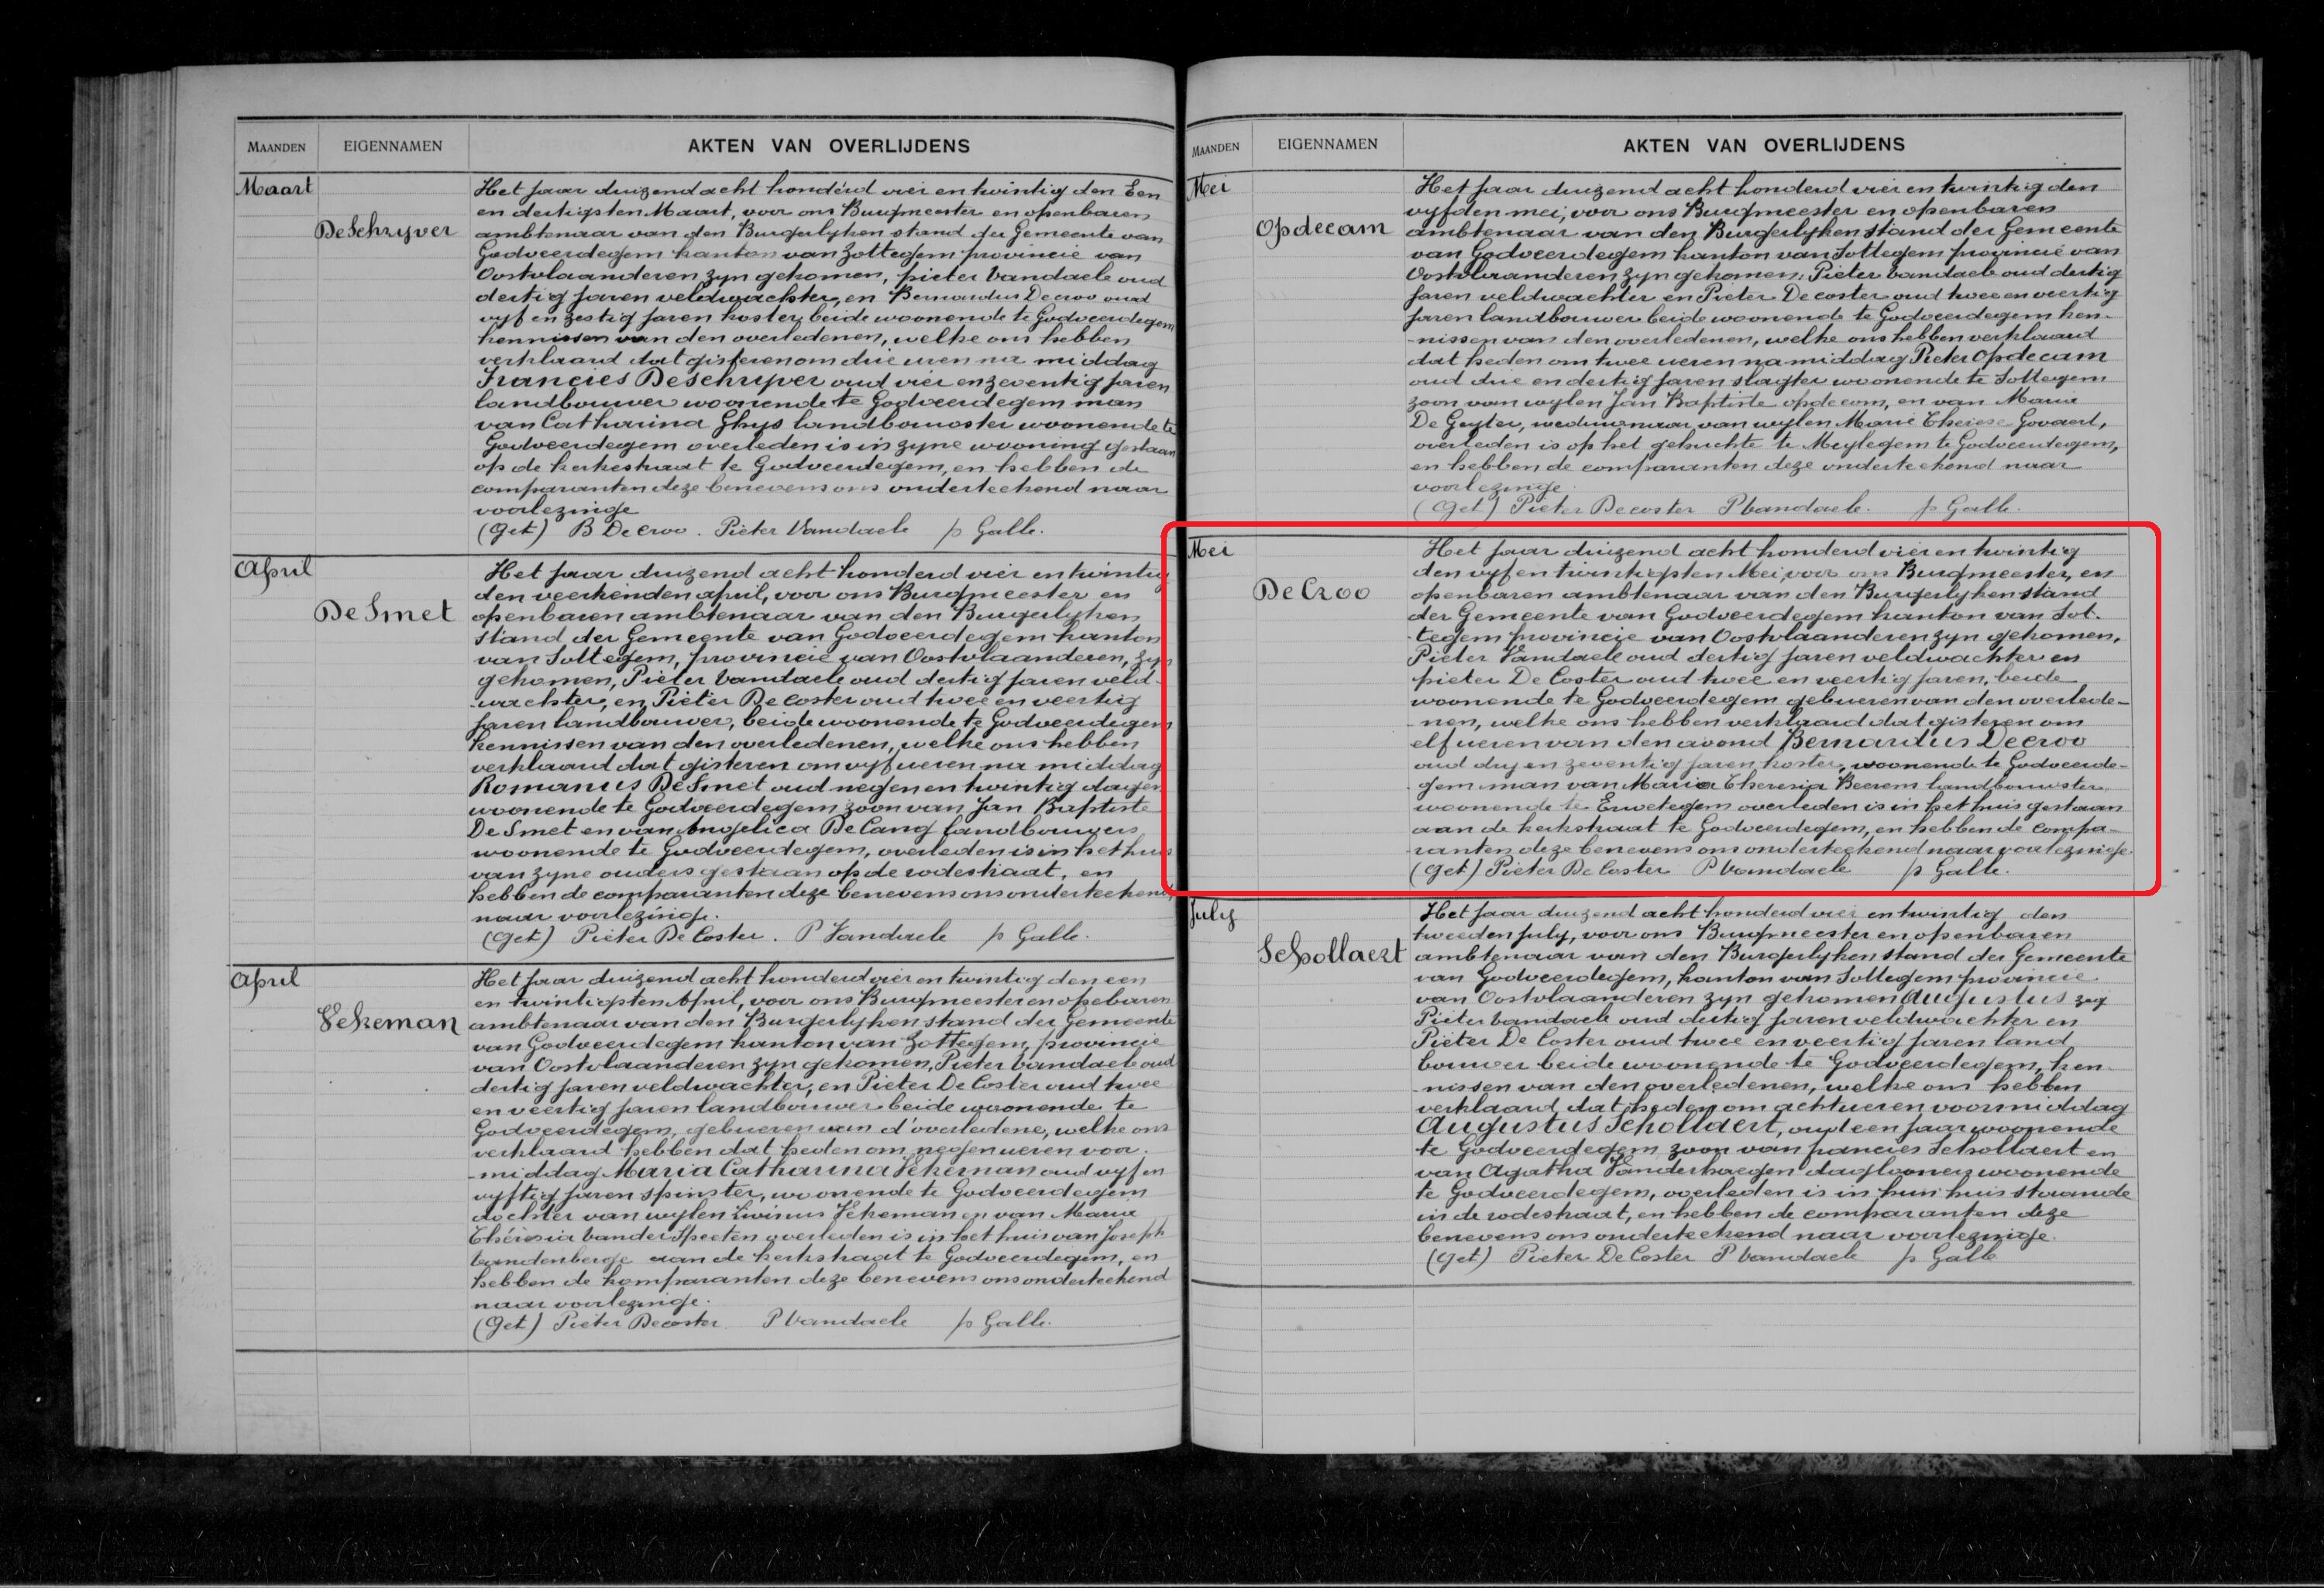 MAANDEN EIGENNAMEN AKTEN VAN OVERLIJDENS
Maart
DeSchryver
Het jaar duizend acht honderd vier en twintig den Een
en dertigsten Maart, voor ons Burgmeester en openbaren
ambtenaar van den Burgerlyken stand der Gemeente van
Godveerdegem kanton van Zottegem provincie van
Oostvlaanderen zyn gekomen, pieter Vandaele oud
dertig jaren veldwachter, en Bernardus Decroo oud
vyf en zestig jaren koster, beide woonende te Godveerdegem
kennissen van den overledenen, welke ons hebben
verklaard dat gisteren om drie uren na middag
Francies Deschryver oud vier en zeventig jaren
landbouwer woonende te Godveerdegem man
van Catharina Ghys landbouwster woonende te
Godveerdegem overleden is in zyne wooning gestaan
op de kerkestraat te Godveerdegem, en hebben de
comparanten deze benevens ons onderteekend naar
voorlezinge
(Get) B DeCroo. Pieter Vandaele p Galle.
April
DeSmet
Het jaar duizend acht honderd vier en twintig
den veertienden april, voor ons Burgmeester en
openbaren ambtenaar van den Burgerlyken
stand der Gemeente van Godveerdegem kanton
van Sottegem, provincie van Oostvlaanderen, zyn
gekomen, Pieter Vandaele oud dertig jaren veld-
-wachter, en Pieter DeCoster oud twee en veertig
jaren landbouwer, beide woonende te Godveerdegem
kennissen van den overledenen, welke ons hebben
verklaard dat gisteren om vyf ueren na middag
Romanus DeSmet oud negen en twintig dagen
woonende te Godveerdegem zoon van Jan Baptiste
De Smet en van Angelica De Cang landbouwers
woonende te Godveerdegem, overleden is in het huis
van zyne ouders gestaan op de rodestraat, en
hebben de comparanten deze benevens ons onderteekend,
naar voorlezinge.
(Get) Pieter DeCoster. P Vandaele p Galle.
April
Vekeman
Het jaar duizend acht honderd vier en twintig den een
en twintigsten April, voor ons Burgmeester en opebaren
ambtenaar van den Burgerlyken stand der Gemeente
van Godveerdegem kanton van Zottegem, provincie
van Oostvlaanderen zyn gekomen, Pieter Vandaele oud
dertig jaren veldwachter, en Pieter DeCoster oud twee
en veertig jaren landbouwer beide woonende te
Godveerdegem, gebueren van d'overledene, welke ons
verklaard hebben dat heden om negen ueren voor.
-middag Maria Catharina Vekeman oud vyf en
vyftig jaren spinster, woonende te Godveerdegem
dochter van wylen Livinus Vekeman en van Maria
Thérésia Vander Speeten overleden is in het huis van Joseph
Vandenberge aan de kerkstraat te Godveerdegem, en
hebben de komparanten deze benevens ons onderteekend
naar voorlezinge.
(Get) Pieter Decoster P Vandaele p Galle.
MAANDEN EIGENNAMEN AKTEN VAN OVERLIJDENS
Mei
Opdecam
Het jaar duizend acht honderd vier en twintig den
vyfden mei, voor ons Burgmeester en openbaren
ambtenaar van den Burgerlyken stand der Gemeente
van Godveerdegem kanton van Sottegem provincie van
Oostvlaanderen zyn gekomen: Pieter Vandaele oud dertig
jaren veldwachter en Pieter Decoster oud twee en veertig
jaren landbouwer beide woonende te Godveerdegem ken-
-nissen van den overledenen, welke ons hebben verklaard
dat heden om twee ueren na middag Pieter Opdecam
oud drie en dertig jaren slagter woonende te Sottegem
zoon van wylen Jan Baptiste opdecam, en van Maria
De Geyter, weduwnaar van wylen Marie Therese Govaert,
overleden is op het gehuchte te Meylegem te Godveerdegem,
en hebben de comparanten deze onderteekend naar
voorlezinge.
(Get) Pieter Decoster P Vandaele. p Galle.
Mei
DeCroo
Het jaar duizend acht honderd vier en twintig
den vyf en twintigsten Mei voor ons Burgmeester, en
openbaren ambtenaar van den Burgerlyken stand
der Gemeente van Godveerdegem kanton van Sot-
-tegem provincie van Oostvlaanderen zyn gekomen,
Pieter Vandaele oud dertig jaren veldwachter en
pieter De Coster oud twee en veertig jaren, beide
woonende te Godveerdegem gebueren van den overlede-
-nen, welke ons hebben verklaard dat gisteren om
elf ueren van den avond Bernardus Decroo
oud dry en zeventig jaren koster, woonende te Godveerde-
-gem man van Maria Theresia Beerens landbouwster
woonende te Erwetegem overleden is in het huis gestaan
aan de kerkstraat te Godveerdegem, en hebben de compa-
-ranten deze benevens ons onderteekend naar voorlezinge.
(Get) Pieter De Coster P Vandaele p Galle.
July
Schollaert
Het jaar duizend acht honderd vier en twintig den
tweeden July, voor ons Burgmeester en openbaren
ambtenaar van den Burgerlyken stand der Gemeente
van Godveerdegem, kanton van Sottegem provincie
van Oostvlaanderen zyn gekomen Augustus zeg
Pieter Vandaele oud dertig jaren veldwachter en
Pieter De Coster oud twee en veertig jaren land
bouwer beide woonende te Godveerdegem, ken-
-nissen van den overledenen, welke ons hebben
verklaard dat heden om acht ueren voormiddag
Augustus Schollaert, oud een jaar woonende
te Godveerdegem zoon van francies Schollaert en
van Agatha Vanderhaegen dagloners woonende
te Godveerdegem, overleden is in hun huis staande
in de rodestraat, en hebben de comparanten deze
benevens ons onderteekend naar voorlezinge.
(Get) Pieter DeCoster P Vandaele p Galle